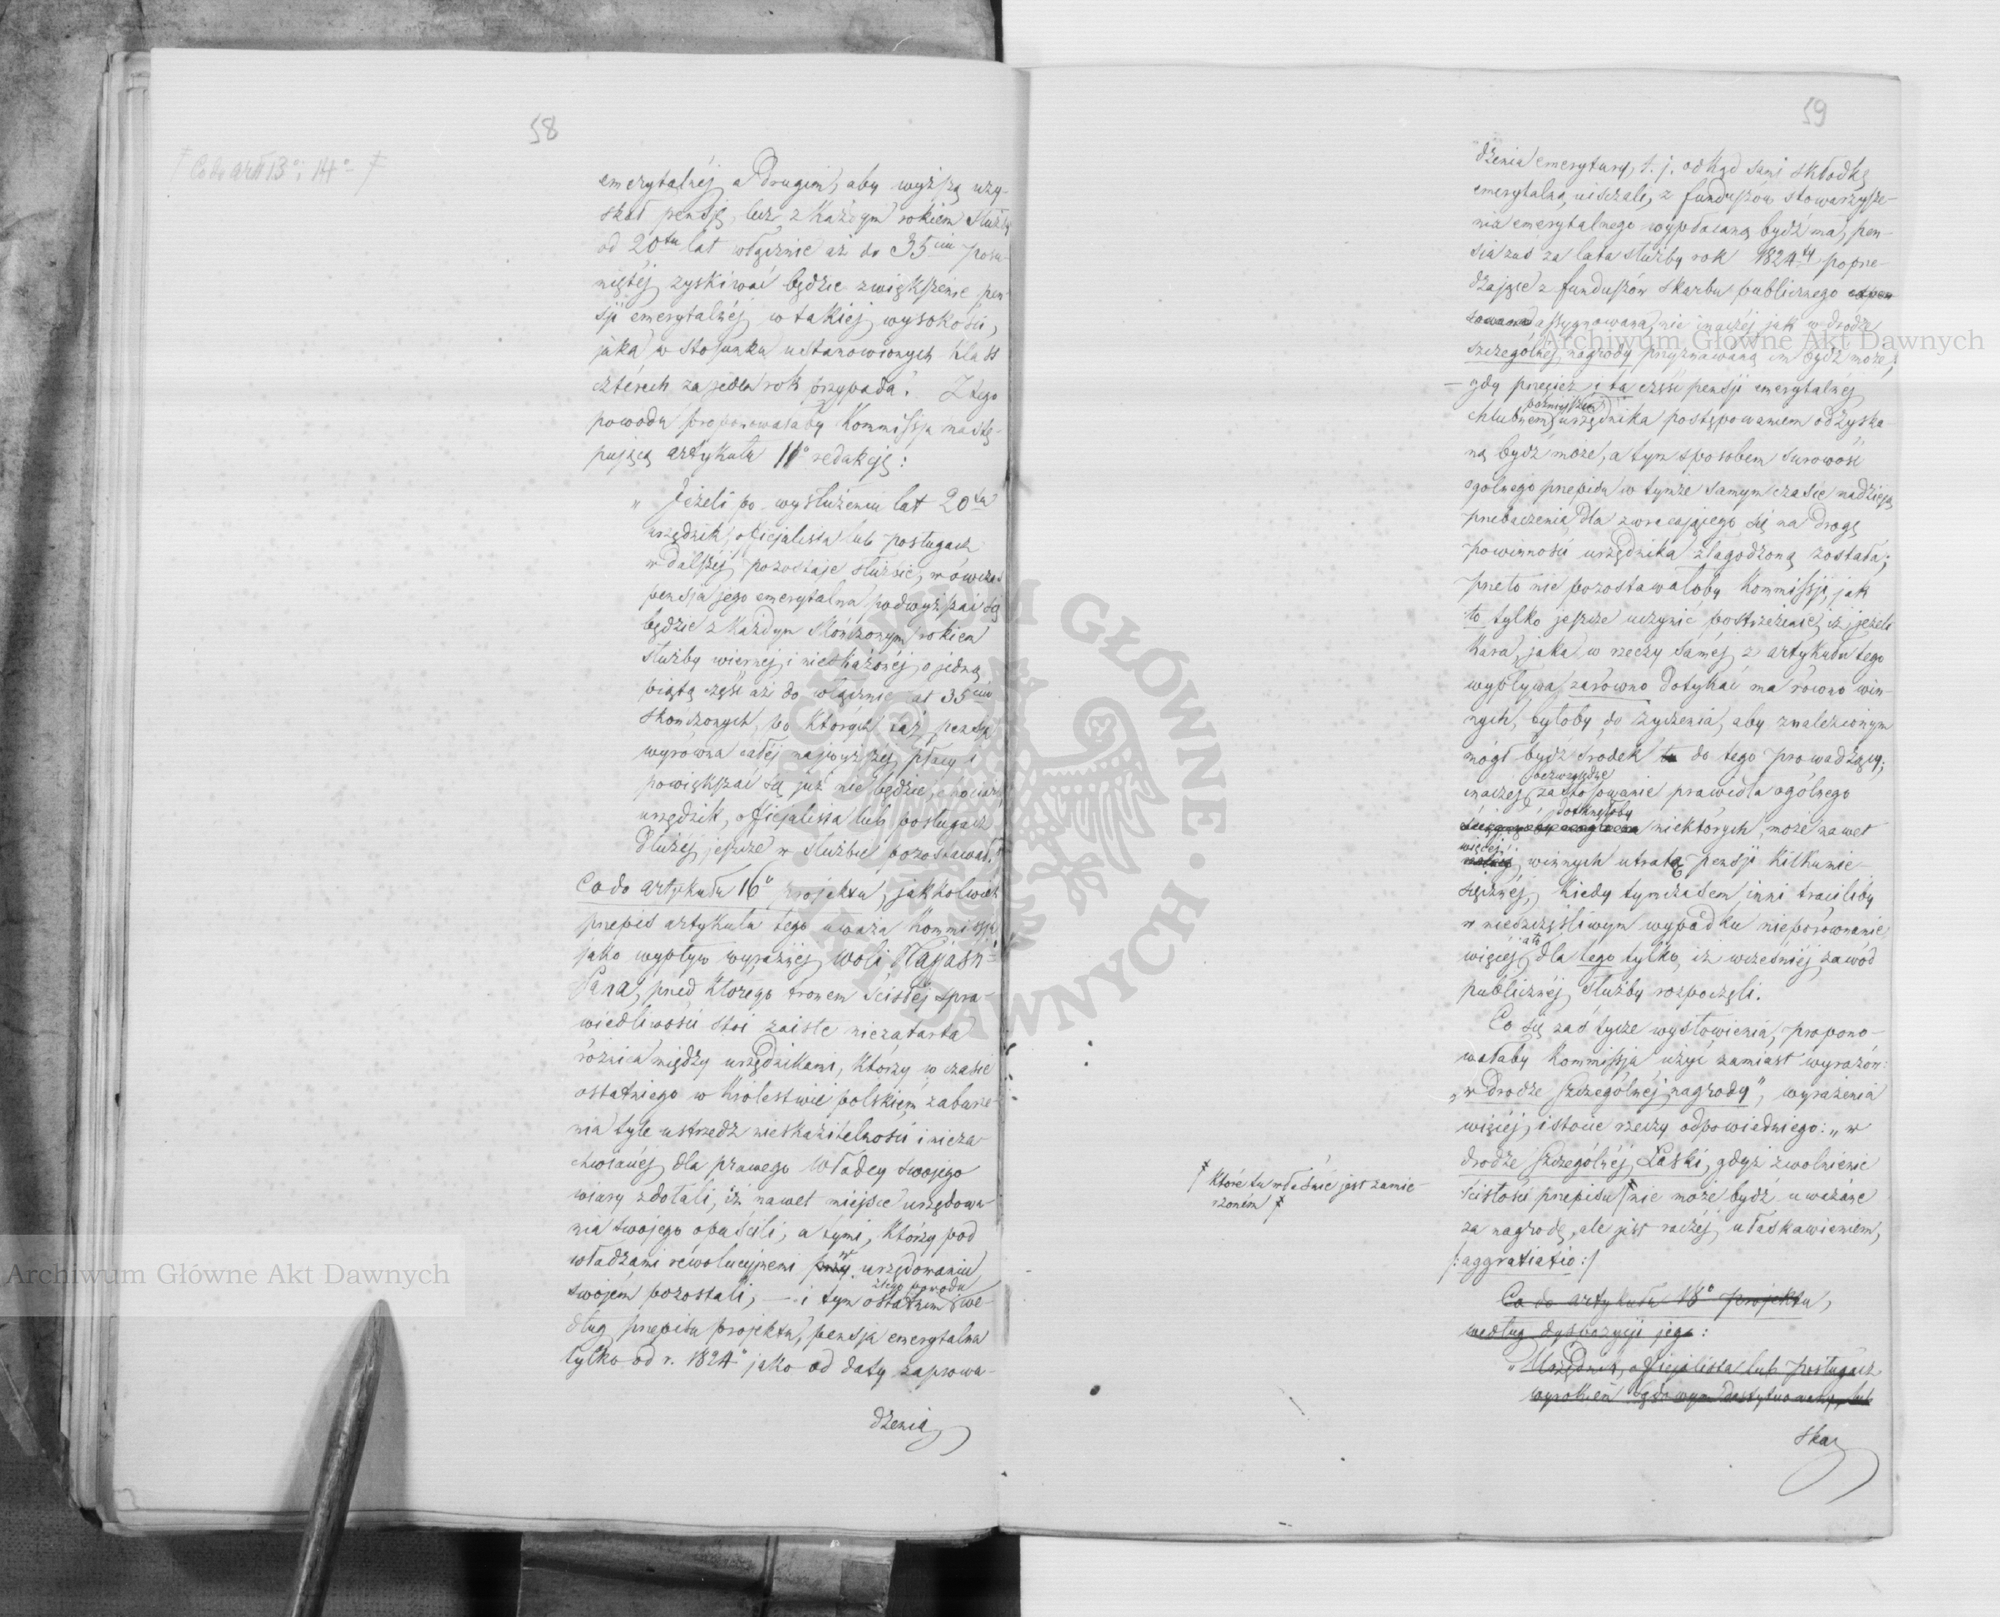 58
Co do art 13° i 14°
emerytalnéj a drugim, aby wyższą uzy-
skał pensję, lecz z każdym rokiem służby
od 20tu lat włącznie aż do 35ciu posu-
niętéj zyskiwać będzie zwiększenie pen-
sji emerytalnéj w takiéj wysokości,
jaka w stosunku ustanowionych klass
czterech za jeden rok przypada. Z tego
powodu proponowałaby Kommissja nastę-
pującą artykułu 11° redakcję:
„Jeżeli po wysłużeniu lat 20tu
urzędnik, oficjalista lub posługacz
w dalszéj pozostaje służbie, wówczas
pensja jego emerytalna podwyższać się
będzie z każdym skończonym rokiem
służby wiernéj i nieskażonéj o jedną
piątą część aż do włącznie lat 35ciu
skończonych, po których taż pensja
wyrówna całéj najwyższéj płacy i
powiększać się już nie będzie, chociażby
urzędnik, officjalista lub posługacz
dłużéj jeszcze w służbie pozostawał."
Co do artykułu 16° projektu, jakkolwiek
przepis artykułu tego uważa Kommissja
jako wypływ wyraźnéj woli Najjaśn:
Pana, przed którego tronem ścisłéj spra-
wiedliwości stoi zaiste niezatarta
różnica między urzędnikami, którzy w czasie
ostatniego w Królestwie polskiém zaburze-
nia tyle ustrzedz nieskazitelności i nieza-
chwianéj dla prawego Władcy swojego
wiary zdołali, iż nawet miejsce urzędowa-
nia swojego opuścili, a tymi, którzy pod
władzami rewolucyjnemi przy w urzędowaniu
swojém pozostali; — i tym ostatnim z tego powodu we-
dług przepisu projektu, pensja emerytalna
tylko od r. 1824° jako od daty zaprowa-
dzenia
59
dzenia emerytury, t. j. odkąd sami składkę
emerytalną uiszczali, z funduszów stowarzysze-
nia emerytalnego wypłacaną bydź ma, pen-
sja zaś za lata służby rok 1824ty poprze-
dzające z funduszów skarbu publicznego
assygnowana, nie inaczéj jak w drodze
szczególnéj nagrody przyznawaną im bydź może;
— gdy przecież i ta część pensji emerytalnéj
chlubném późniejszém urzędnika postępowaniem odzyska-
ną bydź może, a tym sposobem surowość
ogólnego przepisu w tymże samym czasie nadzieją
przebaczenia dla zwracającego się na drogę
powinności urzędnika złagodzoną została;
przeto nie pozostawałoby Kommissji, jak
to tylko jeszcze uczynić postrzeżenie, iż jeżeli
kara, jaka w rzeczy saméj z artykułu tego
wypływa, zarówno dotykać ma równo win-
nych, byłoby do życzenia, aby znalezionym
mógł bydź środek do tego prowadzący;
inaczéj bezwzględne zastosowanie prawidła ogólnego
dotknęłoby niektórych, może nawet
więcéj winnych utratą pensji kilkumie-
sięcznéj, kiedy tymczasem inni traciliby
w nieszczęśliwym wypadku nieporównanie
więcéj, a to dla tego tylko, iż wcześniéj zawód
publicznéj służby rozpoczęli.
Co się zaś tycze wysłowienia, propono-
wałaby Kommissja użyć zamiast wyrazów:
„w drodze szczególnéj nagrody", wyrażenia
więcéj istocie rzeczy odpowiedniego: „w
drodze szczególnéj Łaski, gdyż zwolnienie
ścisłości przepisu nie może bydź uważane
za nagrodę, ale jest raczéj ułaskawieniem,
/:aggratiatio:/
które tu właśnie jest zamie-
rzoném
Co do artykułu 18° projektu,
według dyspozycji jego:
„Urzędnik, officjalista lub posługacz
wyrokiem sądowym destytuowany, lub
ska